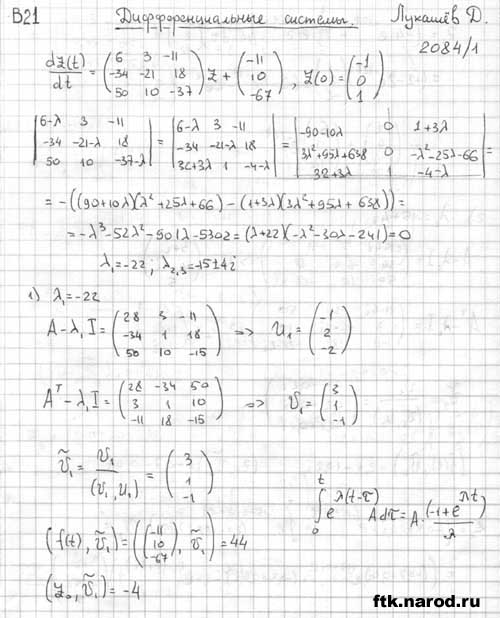 B21 Дифференциальные системы. Лукашёв Д.
2084/1
dz(t)/dt = (6 3 -11; -34 -21 18; 50 10 -37) z + (-11; 10; -67), z(0) = (-1; 0; 1)
|6-λ 3 -11; -34 -21-λ 18; 50 10 -37-λ| = |6-λ 3 -11; -34 -21-λ 18; 32+3λ 1 -4-λ| = |-90-10λ 0 1+3λ; 3λ²+95λ+638 0 -λ²-25λ-66; 32+3λ 1 -4-λ| =
= -((90+10λ)(λ²+25λ+66) - (1+3λ)(3λ²+95λ+638)) =
= -λ³-52λ²-901λ-5302 = (λ+22)(-λ²-30λ-241) = 0
λ₁=-22; λ₂,₃=-15±4i
1) λ₁=-22
A-λ₁I = (28 3 -11; -34 1 18; 50 10 -15) => U₁ = (-1; 2; -2)
Aᵀ-λ₁I = (28 -34 50; 3 1 10; -11 18 -15) => υ₁ = (3; 1; -1)
υ̃₁ = υ₁/(υ₁, u₁) = (3; 1; -1)
∫₀ᵗ e^λ(t-τ) A dτ = A·(-1+e^λt)/λ
(f(t), υ̃₁) = ((-11; 10; -67), υ̃₁) = 44
(z₀, υ̃₁) = -4
ftk.narod.ru